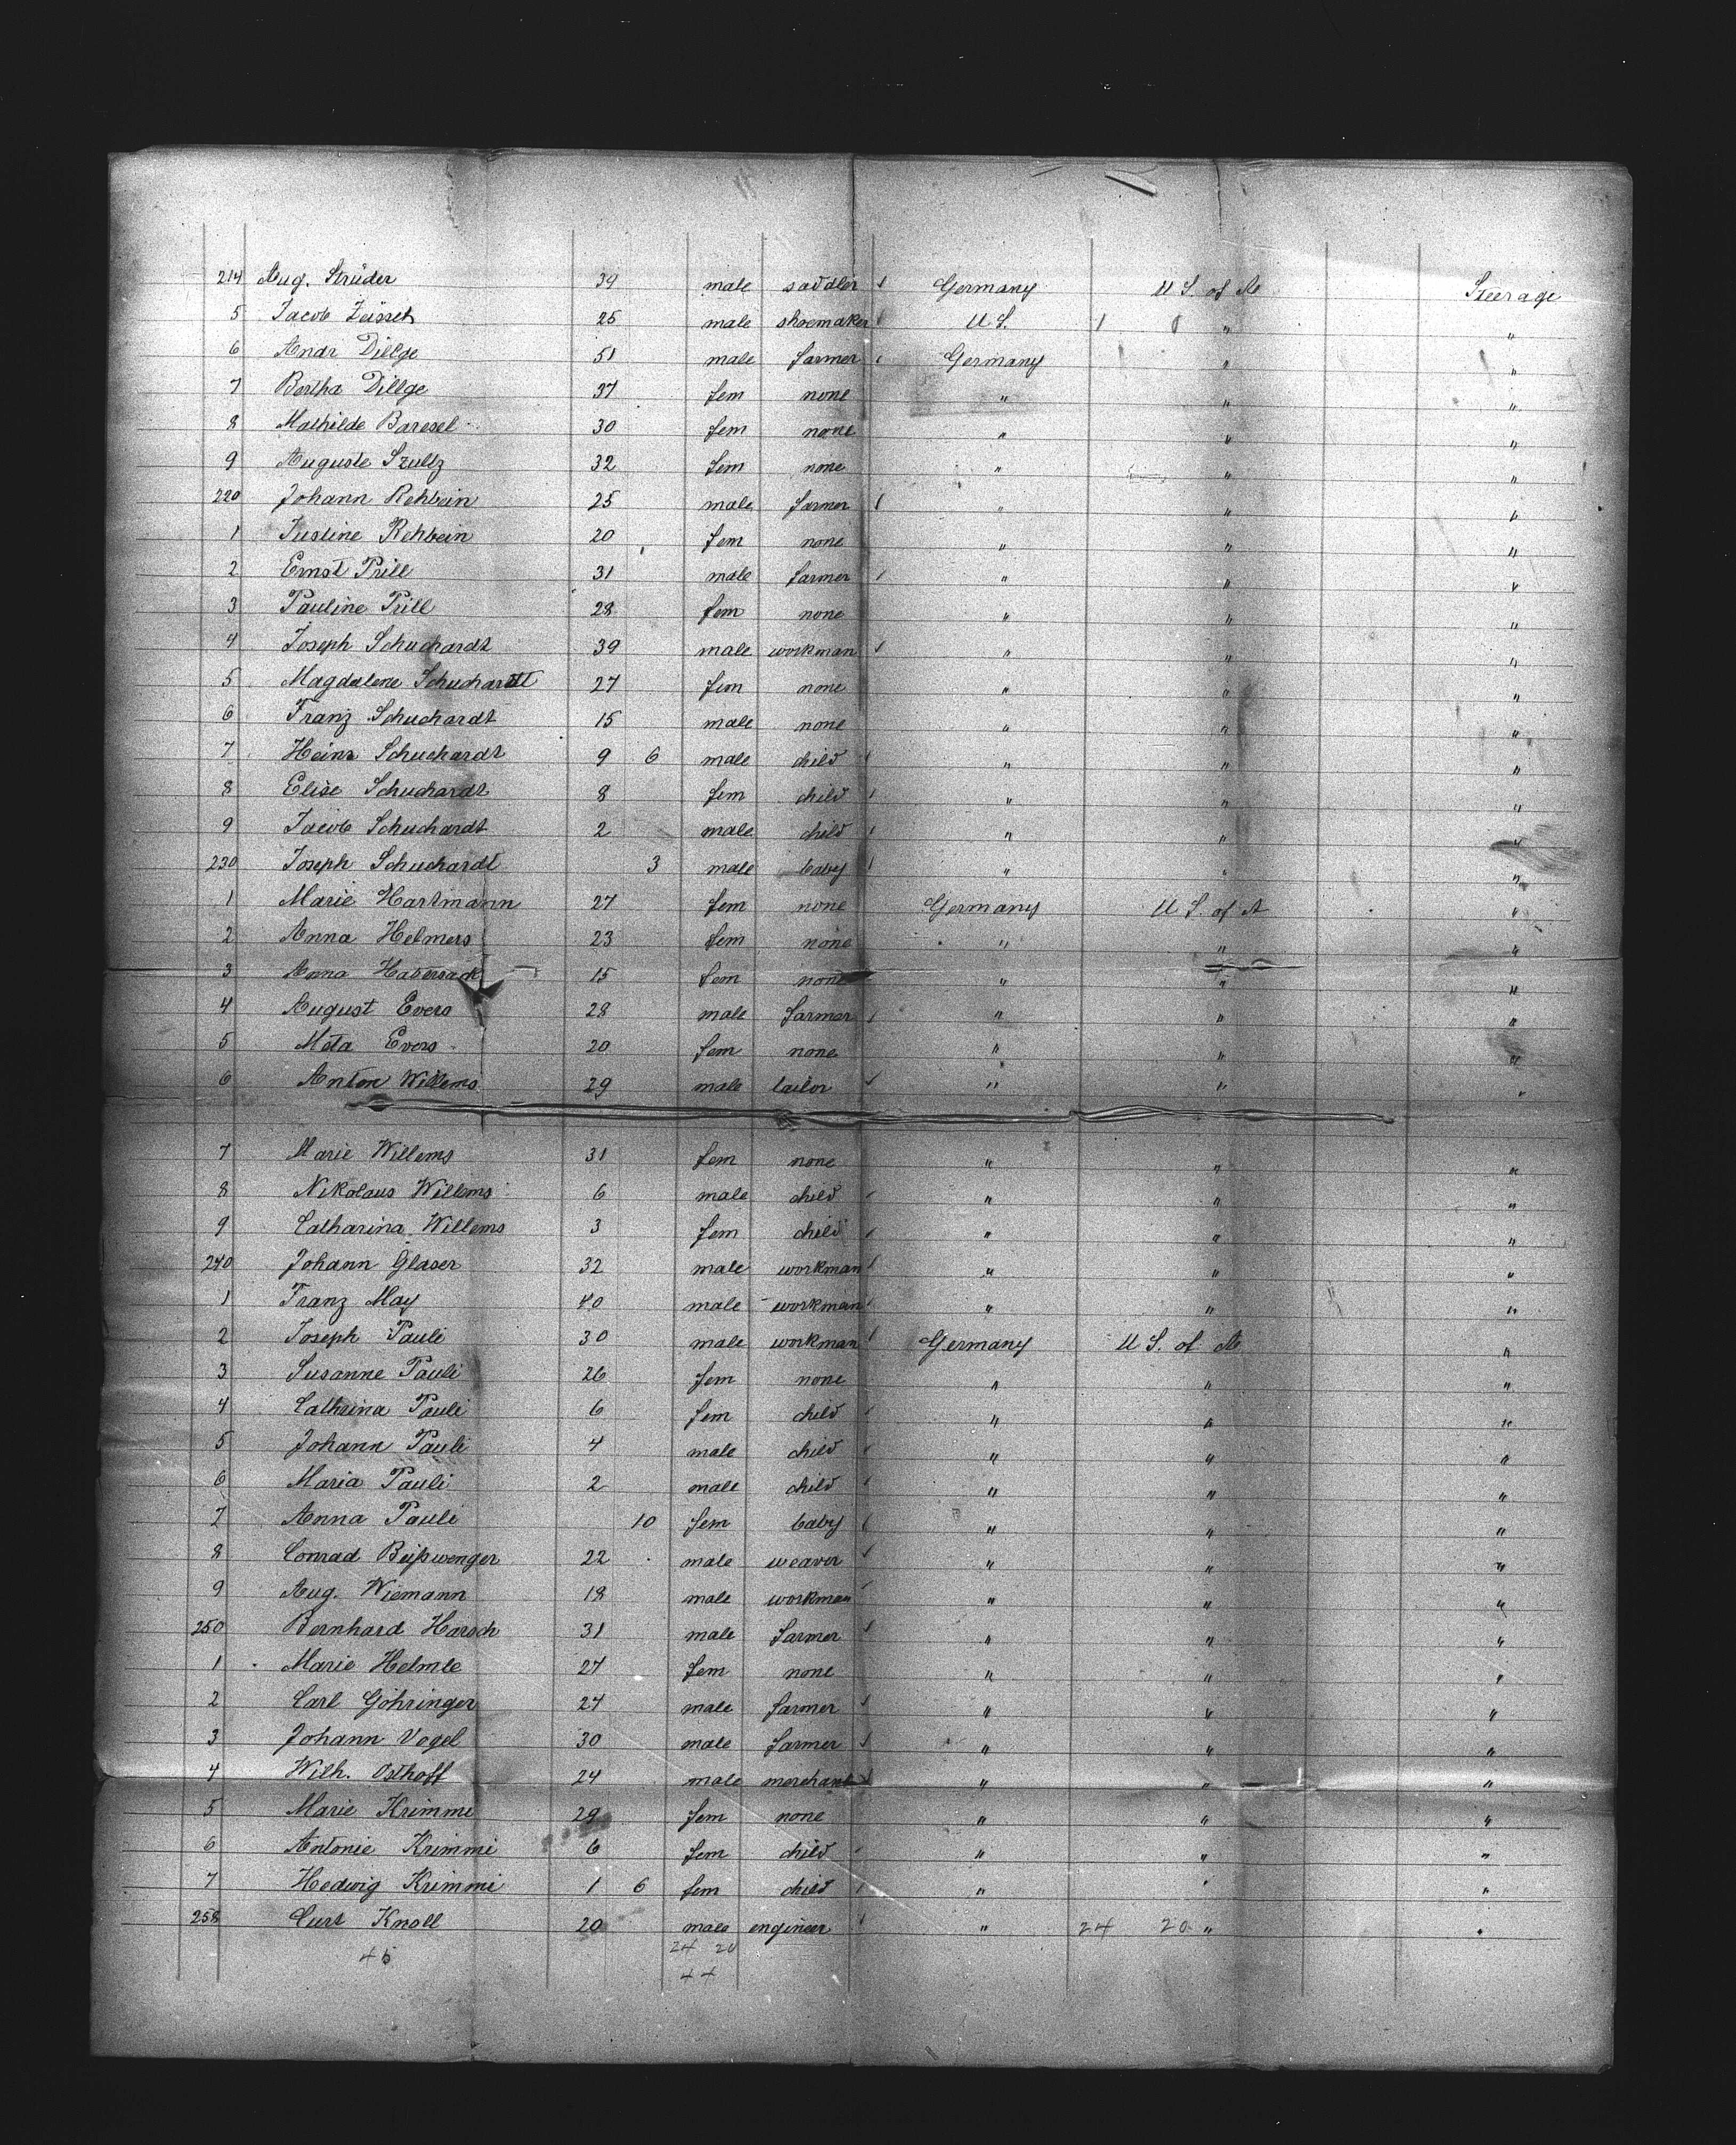 214 Aug. Strüder 39 male saddler Germany U S. of A Steerage
5 Jacob Zeisset 25 male shoemaker U S. 1 " "
6 Andr Dillge 51 male farmer Germany " "
7 Bertha Dillge 37 fem none " " "
8 Mathilde Baresel 30 fem none " " "
9 Auguste Szultz 32 fem none " " "
220 Johann Rehbein 25 male farmer " " "
1 Justine Rehbein 20 fem none " " "
2 Ernst Prill 31 male farmer " " "
3 Pauline Prill 28 fem none " " "
4 Joseph Schuchardt 39 male workman " " "
5 Magdalene Schuchardt 27 fem none " " "
6 Franz Schuchardt 15 male none " " "
7 Heinr Schuchardt 9 6 male child " " "
8 Elise Schuchardt 8 fem child " " "
9 Jacob Schuchardt 2 male child " " "
230 Joseph Schuchardt 3 male baby " " "
1 Marie Hartmann 27 fem none Germany U S. of A "
2 Anna Helmers 23 fem none " " "
3 Anna Habersack 15 fem none " " "
4 August Evers 28 male farmer " " "
5 Meta Evers 20 fem none " " "
6 Anton Willems 29 male tailor " " "
7 Marie Willems 31 fem none " " "
8 Nikolaus Willems 6 male child " " "
9 Catharina Willems 3 fem child " " "
240 Johann Glaser 32 male workman " " "
1 Franz May 40 male workman " " "
2 Joseph Pauli 30 male workman Germany U S. of A "
3 Susanne Pauli 26 fem none " " "
4 Cathrina Pauli 6 fem child " " "
5 Johann Pauli 4 male child " " "
6 Maria Pauli 2 male child " " "
7 Anna Pauli 10 fem baby " " "
8 Conrad Beißwenger 22 male weaver " " "
9 Aug. Wiemann 18 male workman " " "
250 Bernhard Harsch 31 male farmer " " "
1 Marie Helmle 27 fem none " " "
2 Carl Göhringer 24 male farmer " " "
3 Johann Vogel 30 male farmer " " "
4 Wilh. Osthoff 24 male merchant " " "
5 Marie Krimmi 29 fem none " " "
6 Antonie Krimmi 6 fem child " " "
7 Hedwig Krimmi 1 6 fem child " " "
258 Curt Knoll 20 male engineer " 24 20 " "
45 24 20
44